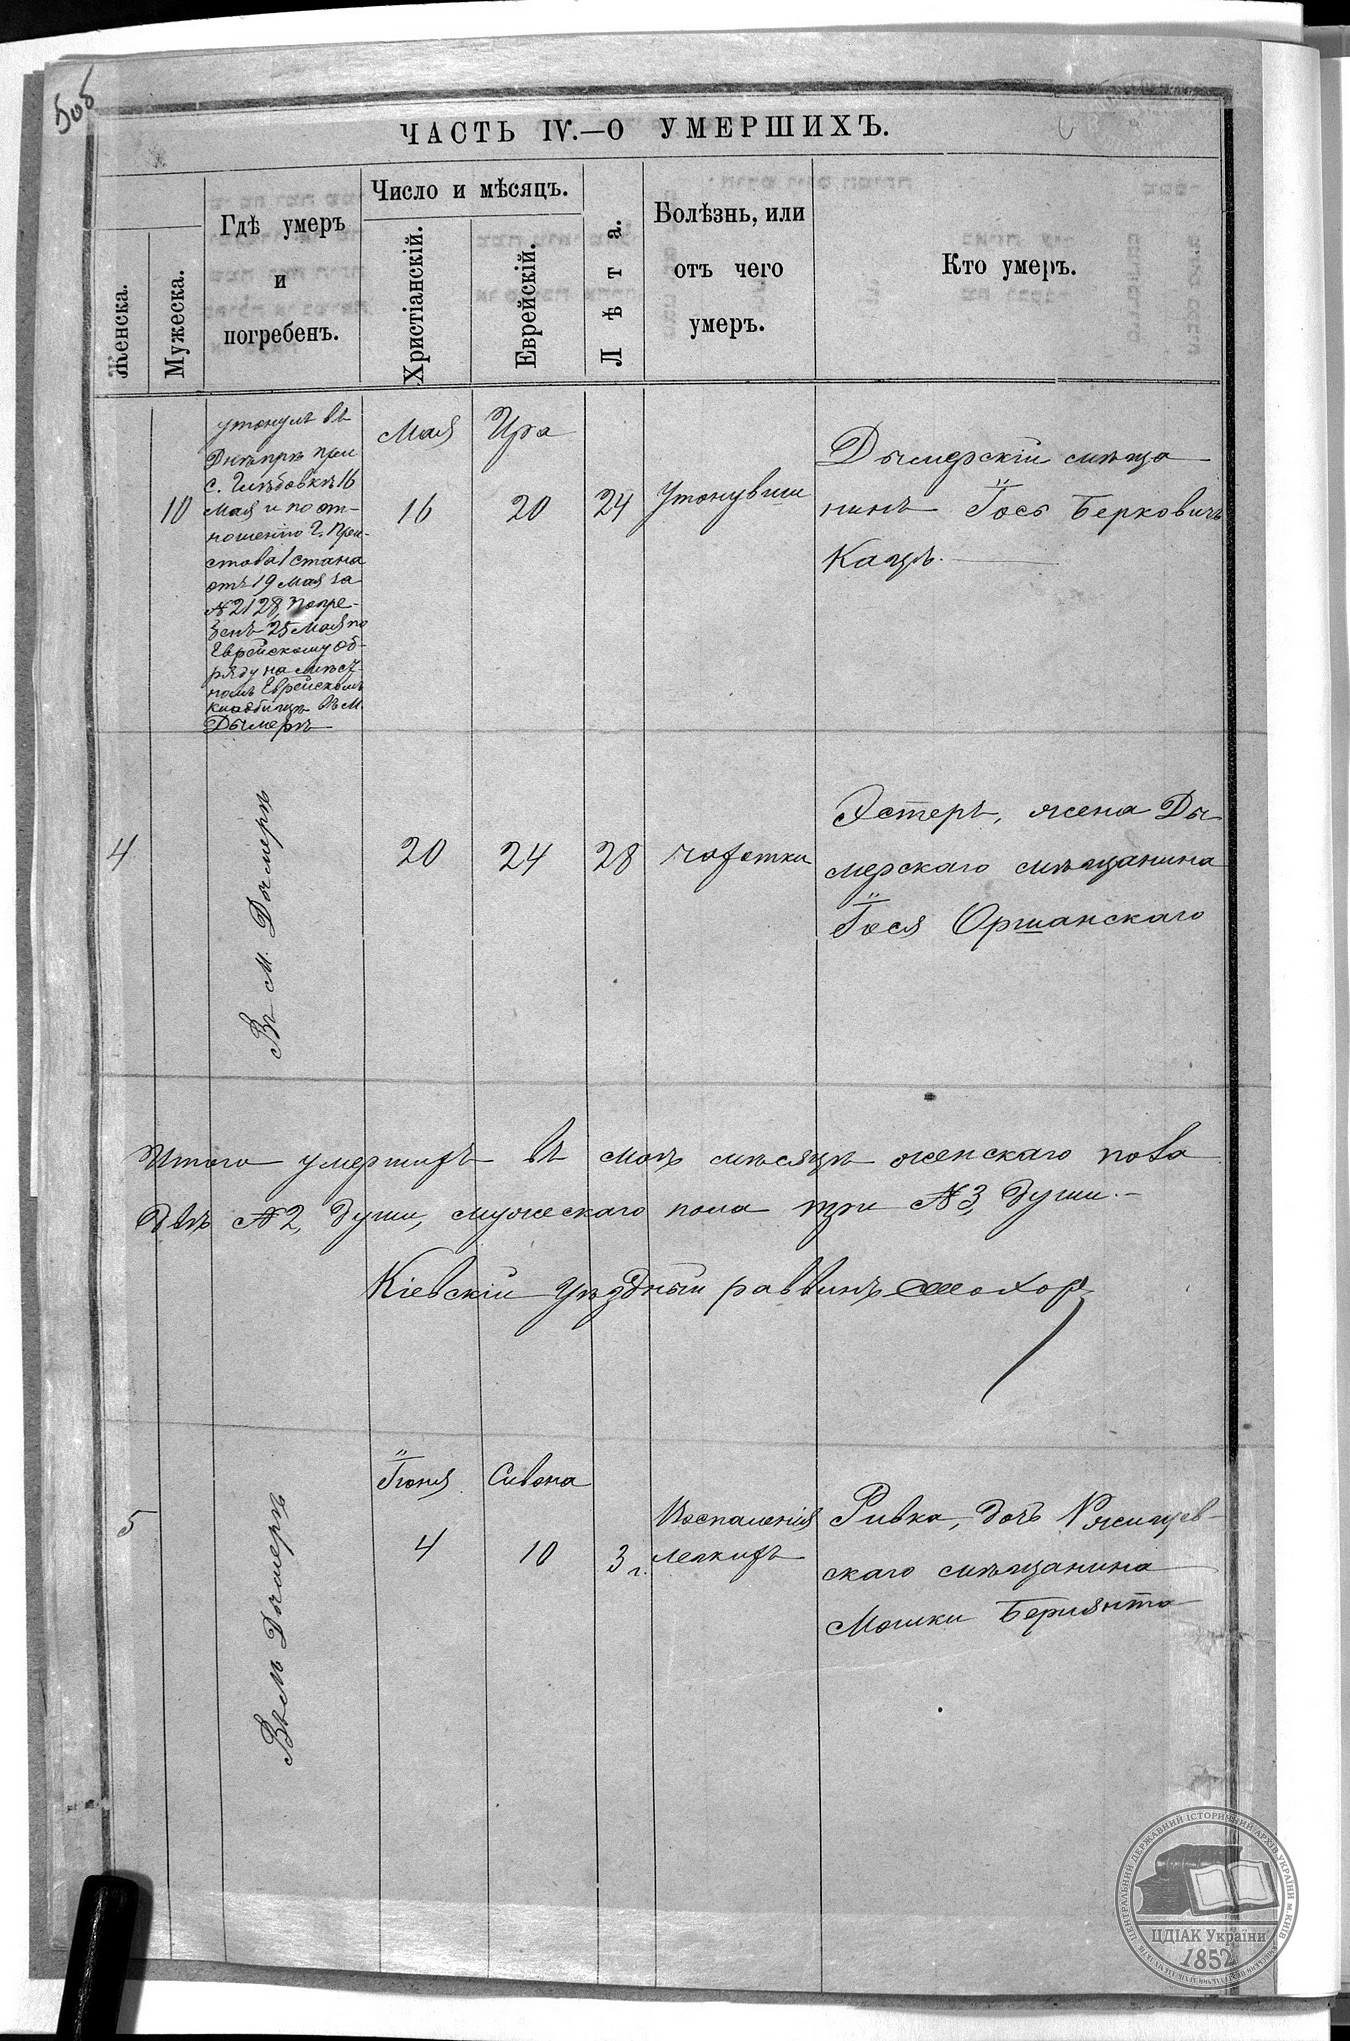 ЧАСТЬ IV.—О УМЕРШИХЪ.
Женска.
Мужеска.
Гдѣ умеръ
и
погребенъ.
Число и мѣсяцъ.
Христіанскій.
Еврейскій.
Лѣта.
Болѣзнь, или
отъ чего
умеръ.
Кто умеръ.
10
утонулъ въ
Днѣпрѣ при
с. Глѣбовкѣ 16
мая и по от-
ношенію Г. При-
става 1 стана
отъ 19 мая за
№ 2128, погре-
бенъ 25 мая по
Еврейскому об-
ряду на мѣст-
номъ Еврейскомъ
кладбищѣ въ м.
Дымерѣ
Мая
16
Ира
20
24
Утонувши
Дымерскій мѣща
нинъ Іось Берковичъ
Кацъ.
4
Въ м. Дымерѣ
20
24
28
чахотки
Эстеръ, жена Ды
мерскаго мѣщанина
Іося Оршанскаго
Итого умершихъ въ маѣ мѣсяцѣ женскаго пола
двѣ № 2, души, мужескаго пола три № 3, души.—
Кіевскій уѣздный раввинъ
5
Въ м. Дымерѣ
Іюня
4
Сивана
10
3 г.
Воспаленія
легкихъ
Ривка, дочь Ржищев-
скаго мѣщанина
Мошки
ЦЕНТРАЛЬНИЙ ДЕРЖАВНИЙ ІСТОРИЧНИЙ АРХІВ УКРАЇНИ м. КИЇВ
ЦДІАК України
1852